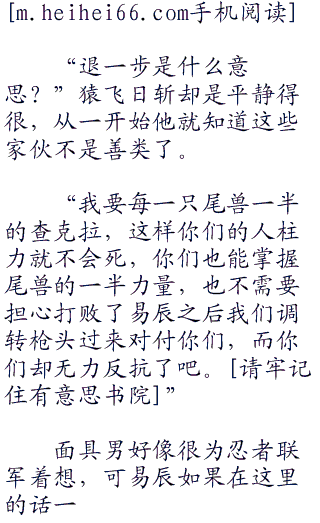 [m.heihei66.com手机阅读]
“退一步是什么意
思？”猿飞日斩却是平静得
很，从一开始他就知道这些
家伙不是善类了。
“我要每一只尾兽一半
的查克拉，这样你们的人柱
力就不会死，你们也能掌握
尾兽的一半力量，也不需要
担心打败了易辰之后我们调
转枪头过来对付你们，而你
们却无力反抗了吧。[请牢记
住有意思书院]”
面具男好像很为忍者联
军着想，可易辰如果在这里
的话一